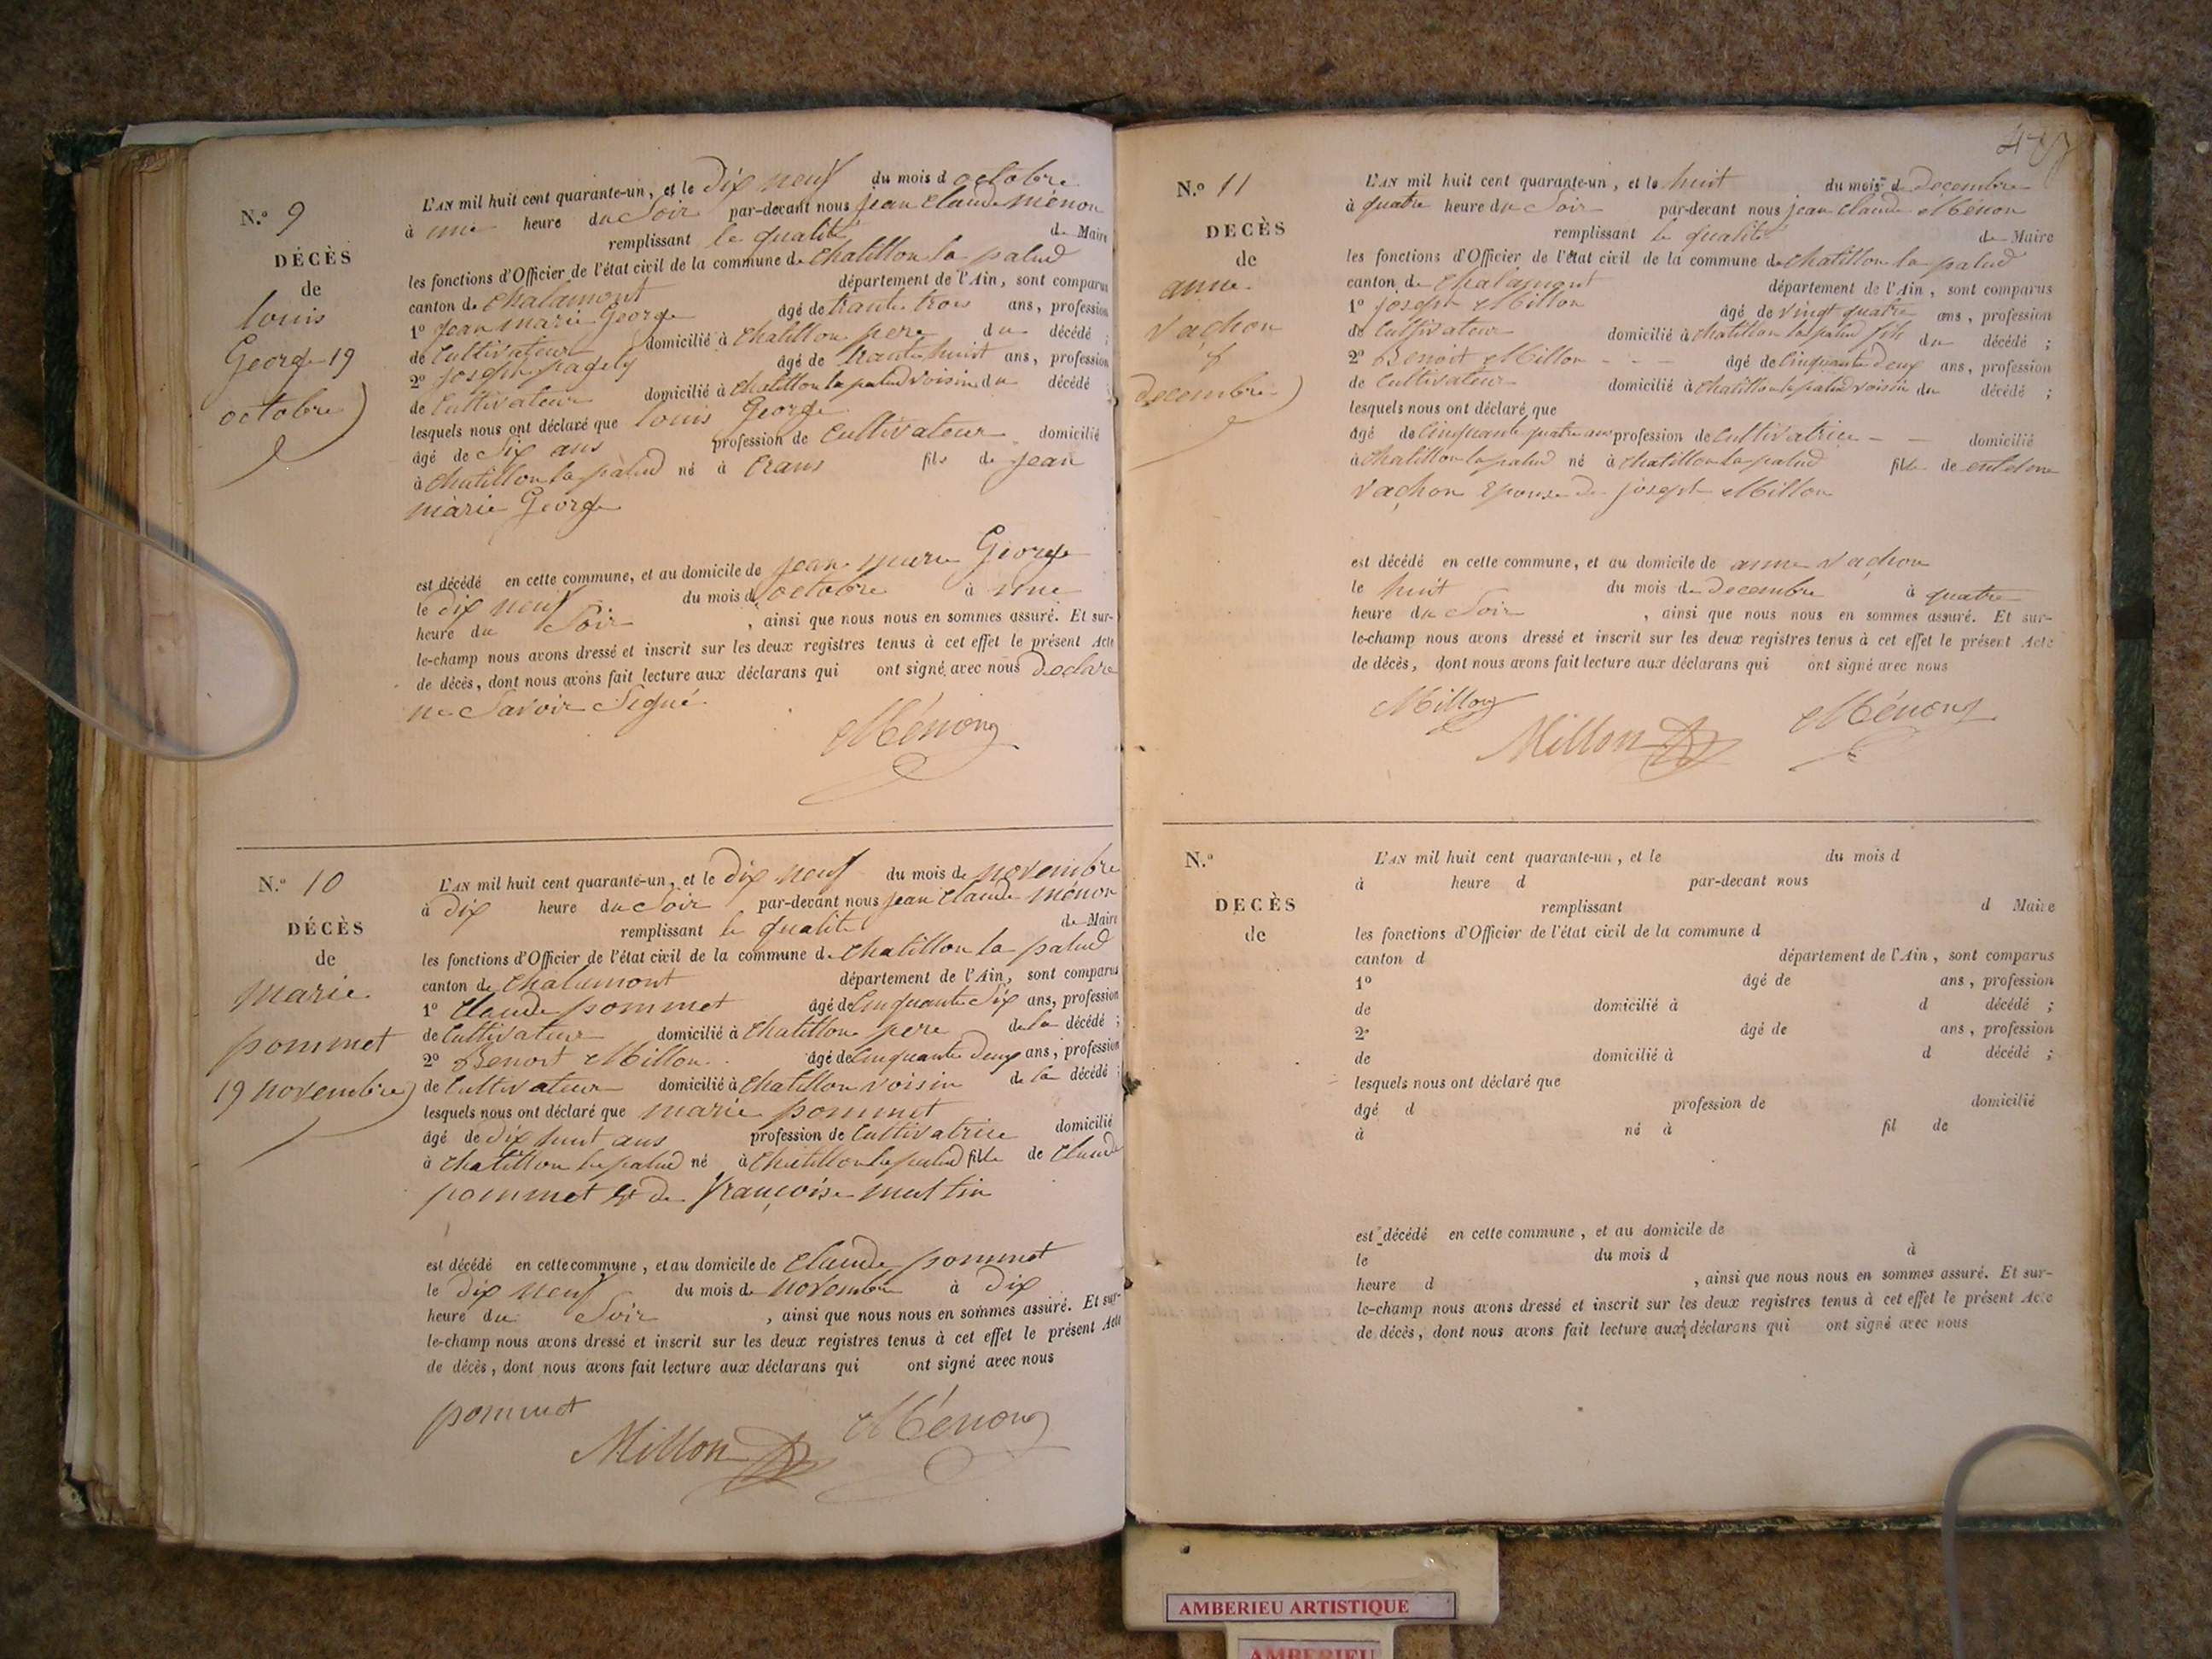 N.º 9
DÉCÈS
de
louis
George 19
octobre
L'AN mil huit cent quarante-un, et le dix neuf du mois d octobre
à une heure du Soir par-devant nous jean claude ménon
remplissant la qualité de Maire
les fonctions d'Officier de l'état civil de la commune de chatillon la palud
canton de chalamont département de l'Ain, sont comparus
1º jean marie George âgé de trante trois ans, profession
de cultivateur domicilié à chatillon pere du décédé ;
2º joseph âgé de trante huit ans, profession
de cultivateur domicilié à chatillon la palud voisin du décédé
lesquels nous ont déclaré que louis George
âgé de Six ans profession de cultivateur domicilié
à chatillon la palud né à crans fils de jean
marie George
est décédé en cette commune, et au domicile de jean marie George
le dix neuf du mois d octobre à une
heure du Soir , ainsi que nous nous en sommes assuré. Et sur-
le-champ nous avons dressé et inscrit sur les deux registres tenus à cet effet le présent Acte
de décès, dont nous avons fait lecture aux déclarans qui ont signé avec nous declare
ne Savoir Signé
Ménon
N.º 10
DÉCÈS
de
marie
pommet
19 novembre
L'AN mil huit cent quarante-un, et le dix neuf du mois de novembre
à dix heure du Soir par-devant nous jean claude ménon
remplissant la qualité de Maire
les fonctions d'Officier de l'état civil de la commune d. chatillon la palud
canton de chalamont département de l'Ain, sont comparus
1º claude pommet âgé de cinquante Six ans, profession
de cultivateur domicilié à chatillon pere de la décédé ;
2º Benoit Millon âgé de cinquante deux ans, profession
de cultivateur domicilié à chatillon voisin de la décédé ;
lesquels nous ont déclaré que marie pommet
âgé de dix huit ans profession de cultivatrice domicilié
à chatillon la palud né à chatillon la palud fille de claude
pommet et de françoise
est décédé en cette commune, et au domicile de claude pommet
le dix neuf du mois de novembre à dix
heure du Soir , ainsi que nous nous en sommes assuré. Et sur-
le-champ nous avons dressé et inscrit sur les deux registres tenus à cet effet le présent Acte
de décès, dont nous avons fait lecture aux déclarans qui ont signé avec nous
pommet
Millon
Ménon
N.º 11
DECÈS
de
anne
vachon
decembre
L'AN mil huit cent quarante-un, et le huit du mois de decembre
à quatre heure du Soir par-devant nous jean claude Ménon
remplissant la qualité de Maire
les fonctions d'Officier de l'état civil de la commune de chatillon la palud
canton de chalamont département de l'Ain, sont comparus
1º joseph Millon âgé de vingt quatre ans, profession
de cultivateur domicilié à chatillon la palud fils du décédé ;
2º Benoit Millon âgé de cinquante deux ans, profession
de cultivateur domicilié à chatillon la palud voisin du décédé ;
lesquels nous ont déclaré que
âgé de cinquante quatre ans profession de cultivatrice domicilié
à chatillon la palud né à chatillon la palud fille de
vachon Epouse de joseph Millon
est décédé en cette commune, et au domicile de anne vachon
le huit du mois de decembre à quatre
heure du Soir , ainsi que nous nous en sommes assuré. Et sur-
le-champ nous avons dressé et inscrit sur les deux registres tenus à cet effet le présent Acte
de décès, dont nous avons fait lecture aux déclarans qui ont signé avec nous
Millon
Millon
Ménon
N.º
DECÈS
de
L'AN mil huit cent quarante-un, et le du mois d
à heure d par-devant nous
remplissant d Maire
les fonctions d'Officier de l'état civil de la commune d
canton d département de l'Ain, sont comparus
1º âgé de ans, profession
de domicilié à d décédé ;
2º âgé de ans, profession
de domicilié à d décédé ;
lesquels nous ont déclaré que
âgé d profession de domicilié
à né à fil de
est décédé en cette commune, et au domicile de
le du mois d à
heure d , ainsi que nous nous en sommes assuré. Et sur-
le-champ nous avons dressé et inscrit sur les deux registres tenus à cet effet le présent Acte
de décès, dont nous avons fait lecture aux déclarans qui ont signé avec nous
AMBERIEU ARTISTIQUE
AMBERIEU